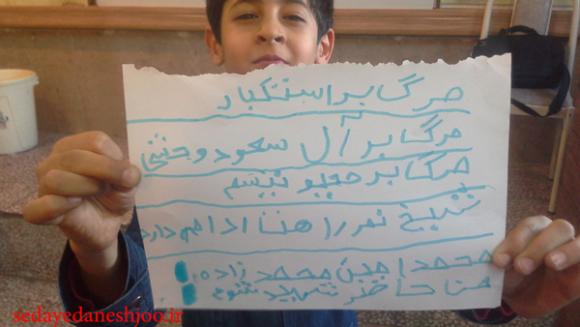 مرگ بر استکبار
مرگ بر آل سعود وحشی
مرگ بر صهیو نیسم
شیخ نمر راهت ادامه دارد
محمد امین محمد زاده!
من حا ضر شهید شوم!
sedayedaneshjoo.ir